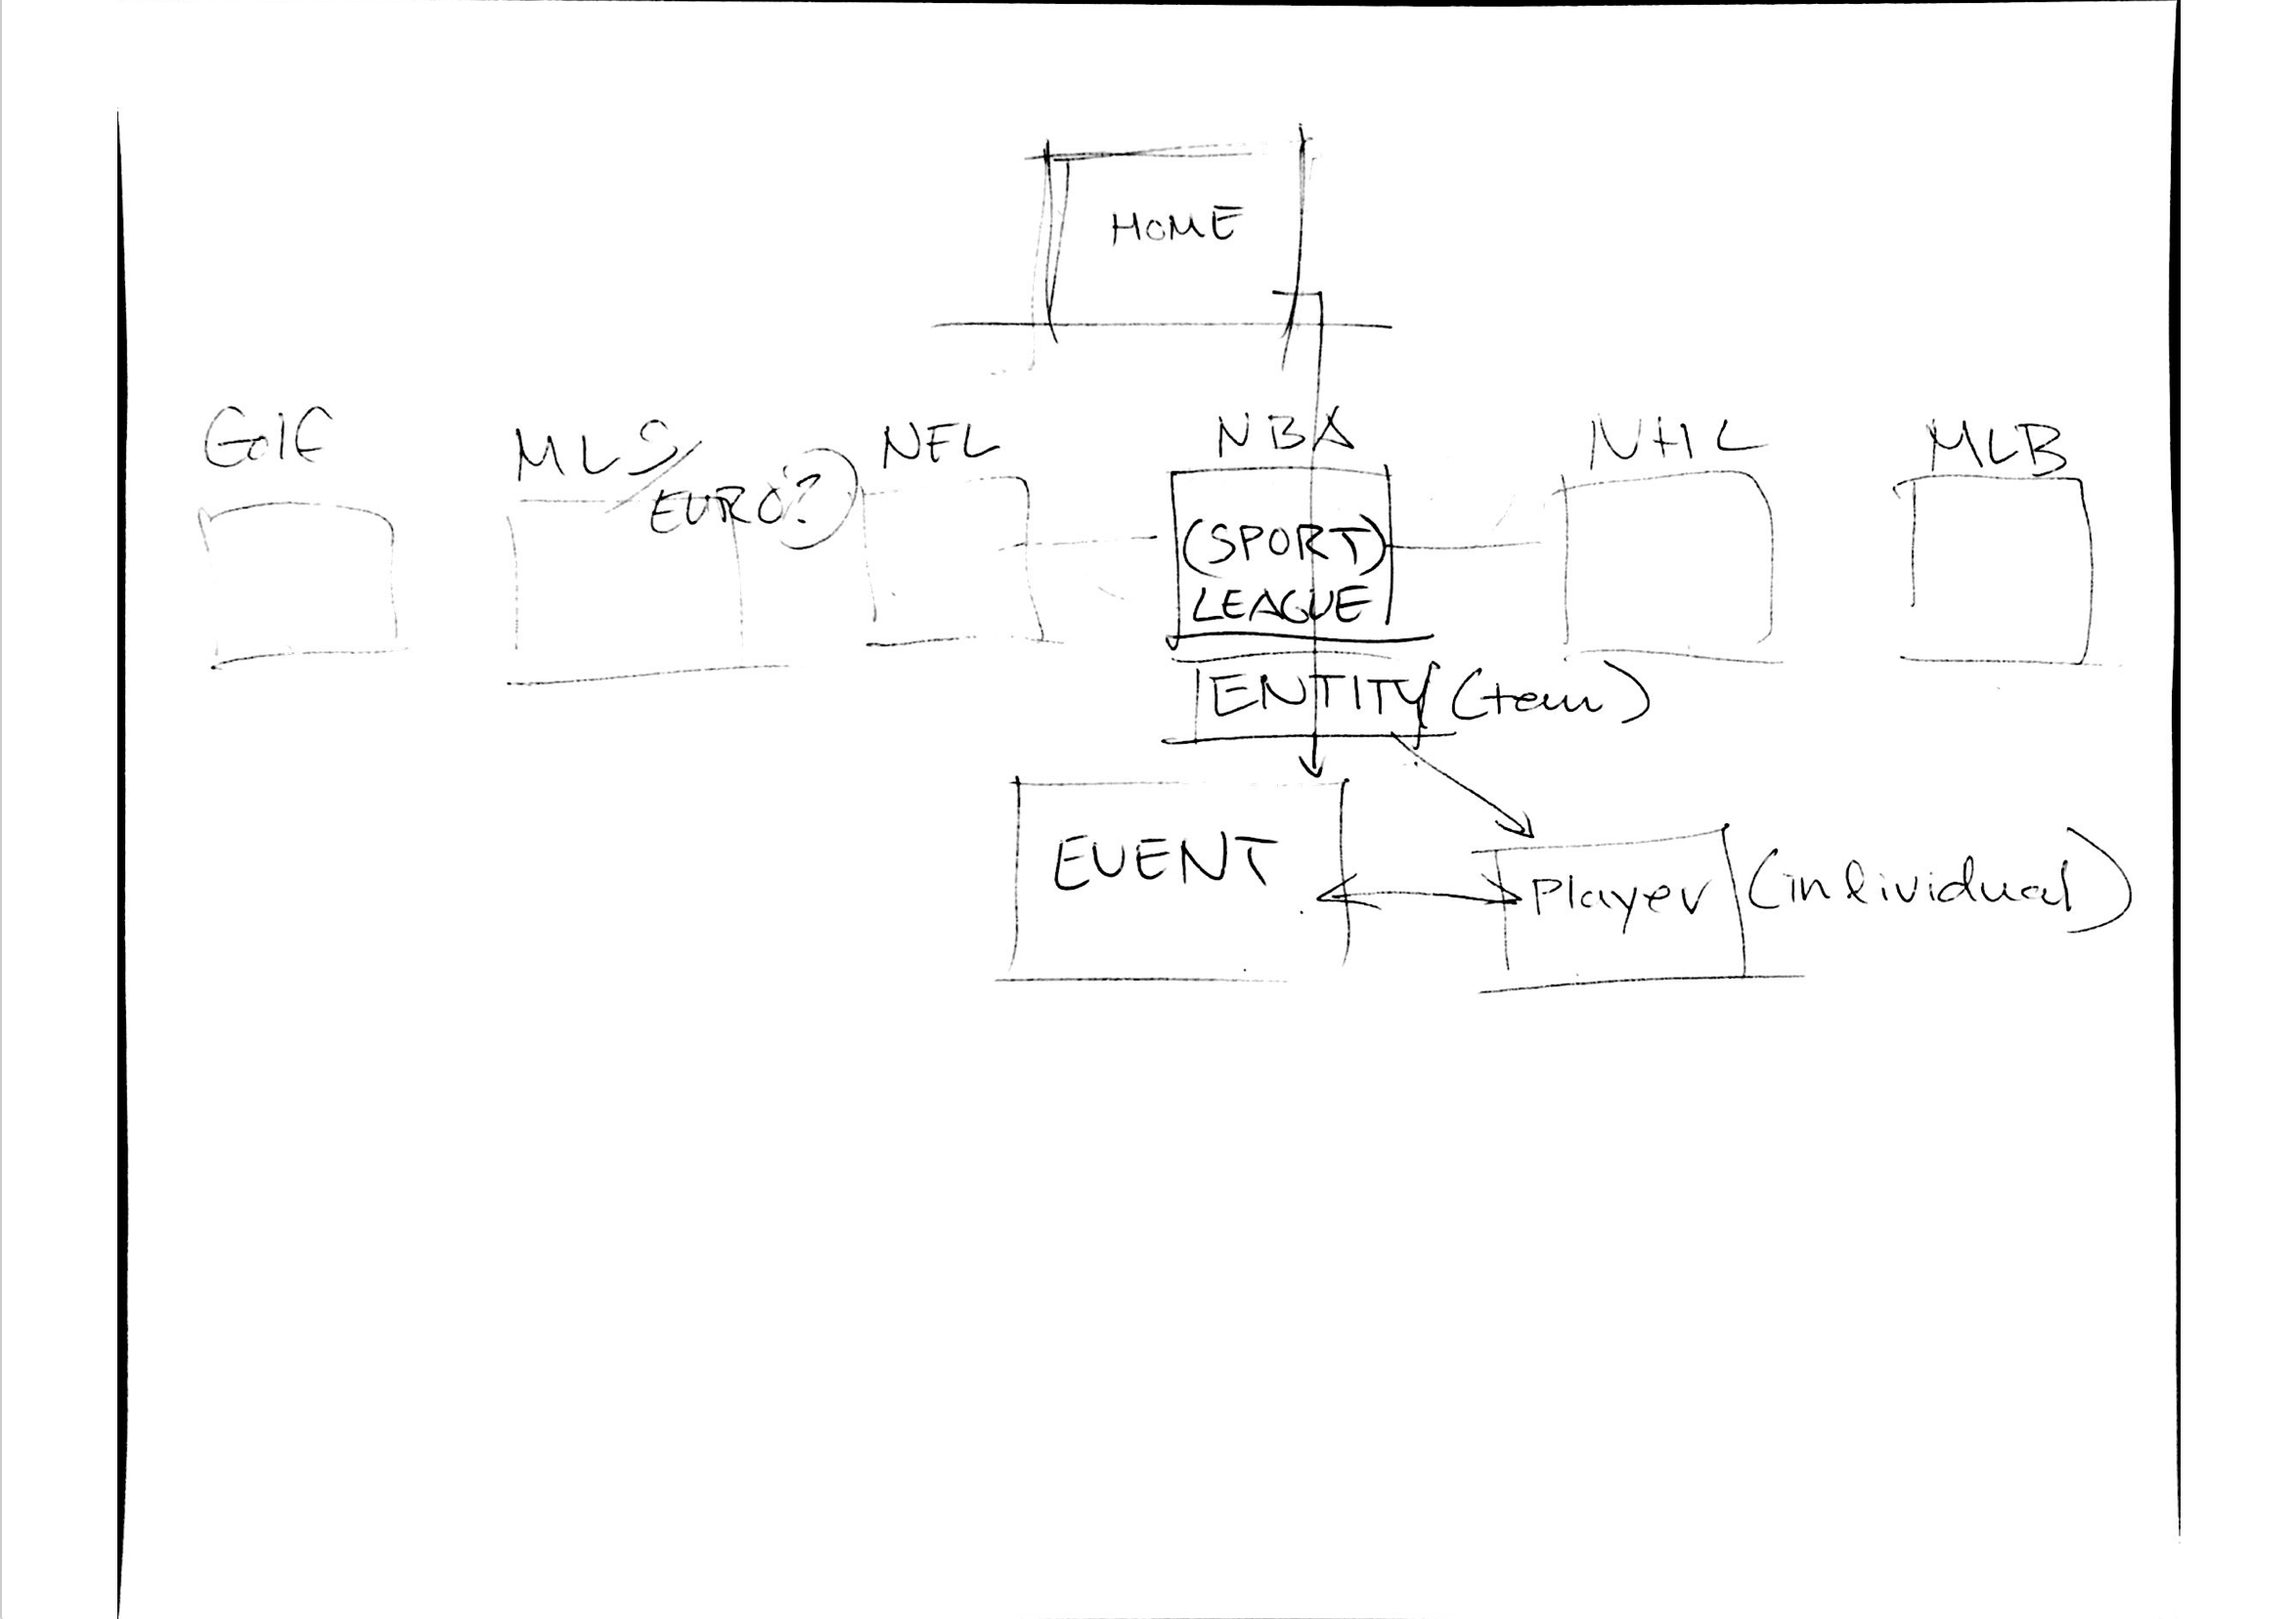 HOME
Golf
MLS/
EURO?)
NFL
NBA
NHL
MLB
(SPORT)
LEAGUE
ENTITY (team)
EVENT
Player (individual)